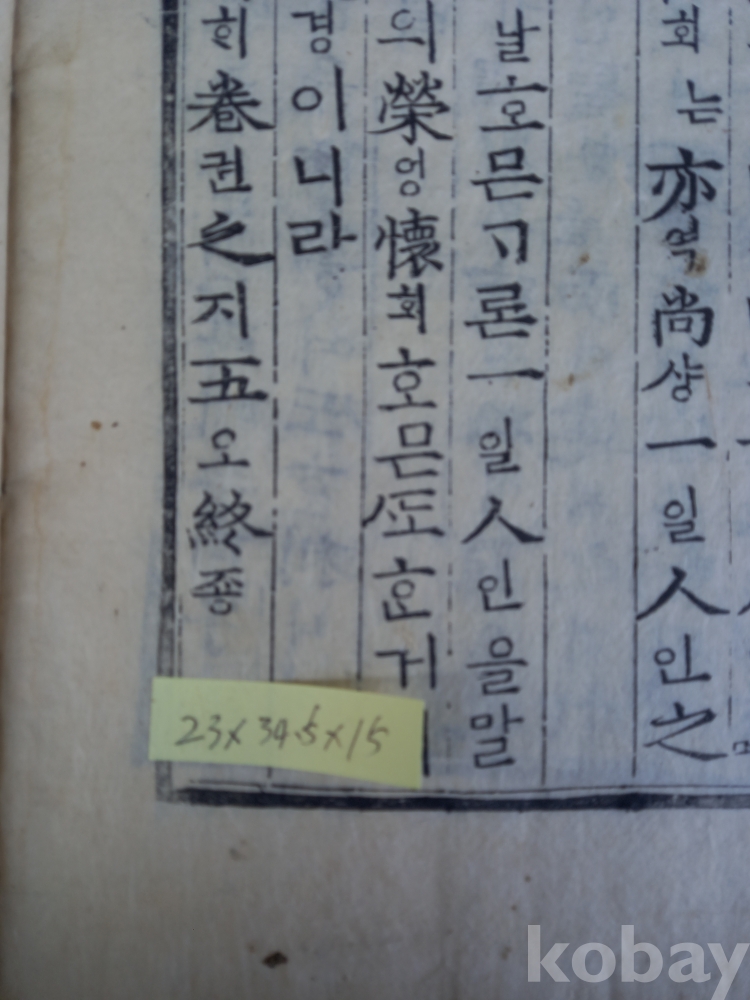 회는亦역尚샹一일人인之
날호믄ᄀᆞ론一일人인을말
의榮영懷회호믄ᄯᅩ혼기
경이니라
희卷권之지五오終죵
23×34.5×15
kobay